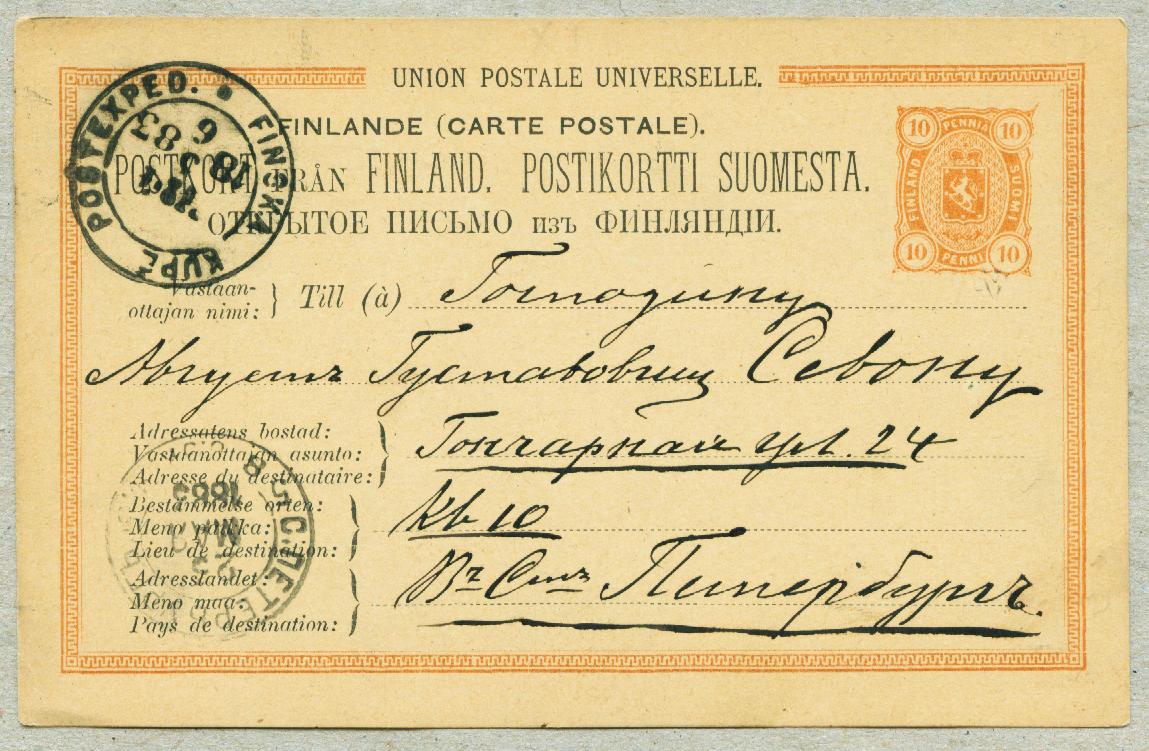 UNION POSTALE UNIVERSELLE.
FINLANDE (CARTE POSTALE).
POSTKORT FRÅN FINLAND. POSTIKORTTI SUOMESTA.
ОТКРЫТОЕ ПИСЬМО изъ ФИНЛЯНДІИ.
10 PENNIA 10
FINLAND SUOMI
10 PENNI 10
FINSKA KUPÉ POSTEXPED.
18 6 83
Vastaan-
ottajan nimi: } Till (à) Господину
Августъ Густавовищ Севону
Adressatens bostad:
Vastaanottajan asunto: Гончарная ул. 24
Adresse du destinataire:
Bestämmelse orten:
Meno paikka: кв 10
Lieu de destination:
Adresslandet: Въ Смъ Питербургъ.
Meno maa:
Pays de destination:
С.ПЕТЕР